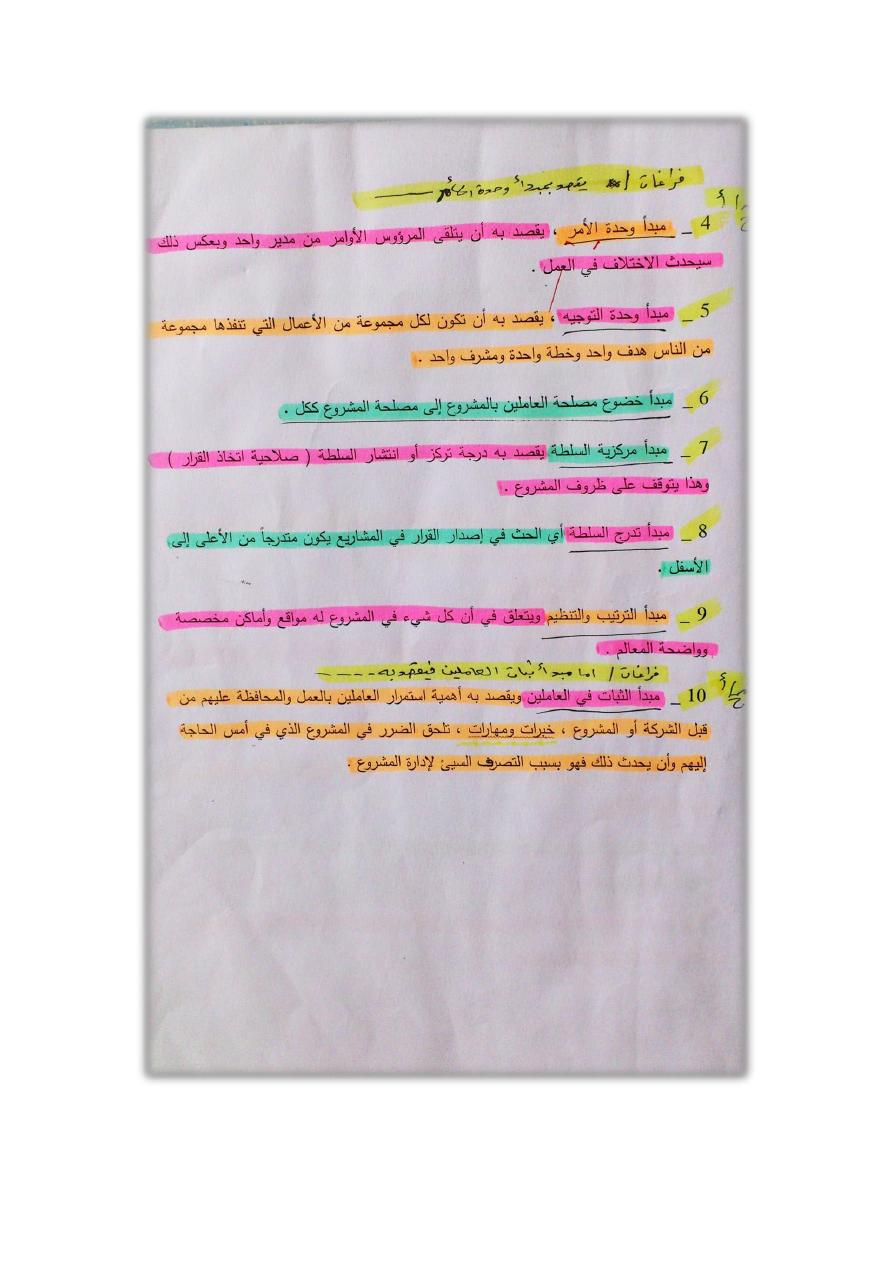 فراغات / يقصد بمبدأ وحدة الأمر ــــــ
4 _ مبدأ وحدة الأمر ، يقصد به أن يتلقى المرؤوس الأوامر من مدير واحد وبعكس ذلك
سيحدث الاختلاف في العمل .
5 _ مبدأ وحدة التوجيه ، يقصد به أن تكون لكل مجموعة من الأعمال التي تنفذها مجموعة
من الناس هدف واحد وخطة واحدة ومشرف واحد .
6 _ مبدأ خضوع مصلحة العاملين بالمشروع إلى مصلحة المشروع ككل .
7 _ مبدأ مركزية السلطة يقصد به درجة تركز أو انتشار السلطة ( صلاحية اتخاذ القرار )
وهذا يتوقف على ظروف المشروع .
8 _ مبدأ تدرج السلطة أي الحث في إصدار القرار في المشاريع يكون متدرجاً من الأعلى إلى
الأسفل .
9 _ مبدأ الترتيب والتنظيم ويتعلق في أن كل شيء في المشروع له مواقع وأماكن مخصصة
وواضحة المعالم .
فراغات / اما مبدأ ثبات العاملين فيقصد به -----
10 _ مبدأ الثبات في العاملين ويقصد به أهمية استمرار العاملين بالعمل والمحافظة عليهم من
قبل الشركة أو المشروع ، خبرات ومهارات ، تلحق الضرر في المشروع الذي في أمس الحاجة
إليهم وأن يحدث ذلك فهو بسبب التصرف السيئ لإدارة المشروع .